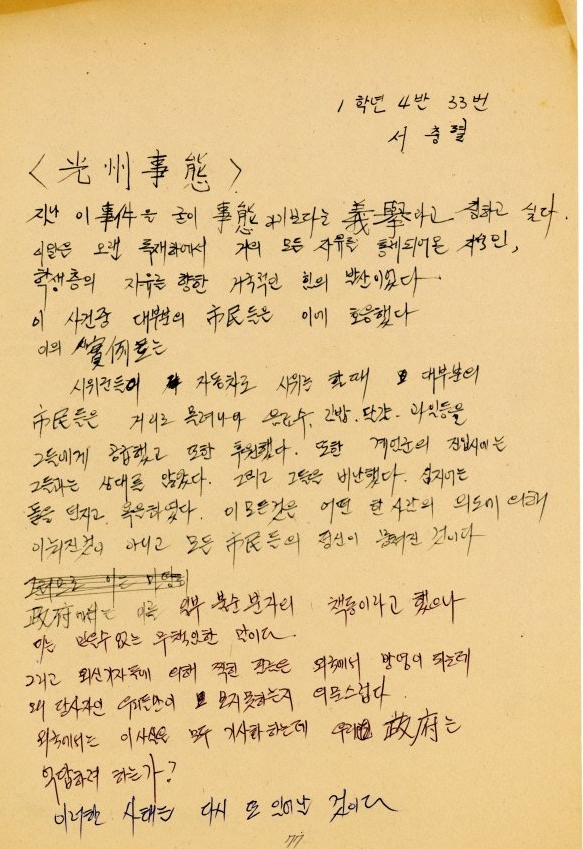 1 학년 4반 33번
서 충렬
<光州事態>
지난 이 事件을 굳이 事態 보다는 義擧라고 칭하고 싶다.
이일은 오랜 독재하에서 거의 모든 자유를 통제되어온
학생층의 자유를 향한 거국적인 힘의 발산이었다
이 사건중 대부분의 市民들은 이에 호응했다
이의 實例로는
시위군중들이 자동차로 시위를 할때 대부분의
市民들은 거리로 몰려나와 음료수, 김밥, 달걀, 과일등을
그들에게 공급했고 또한 후원했다. 또한 계엄군의 진입시에는
그들과는 상대를 않았다. 그리고 그들을 비난했다. 심지어는
돌을 던지고 욕을하였다. 이모든것은 어떤 한 사람의 의도에 의해
이뤄진것이 아니고 모든 市民들의 정신이 뭉쳐진 것이다
政府에서는 이를 일부 불순분자의 책동이라고 했으나
이는 믿을수 없는 무책임한 말이다.
그리고 외신기자들에 의해 찍힌 필름은 외국에서 방영이 되는데
왜 당사자인 우리들만이 보지못하는지 의문스럽다
외국에서는 이사실을 모두 기사화하는데 우리 政府는
욕답하려 하는가?
이러한 사태는 다시 또 일어날 것이다
77